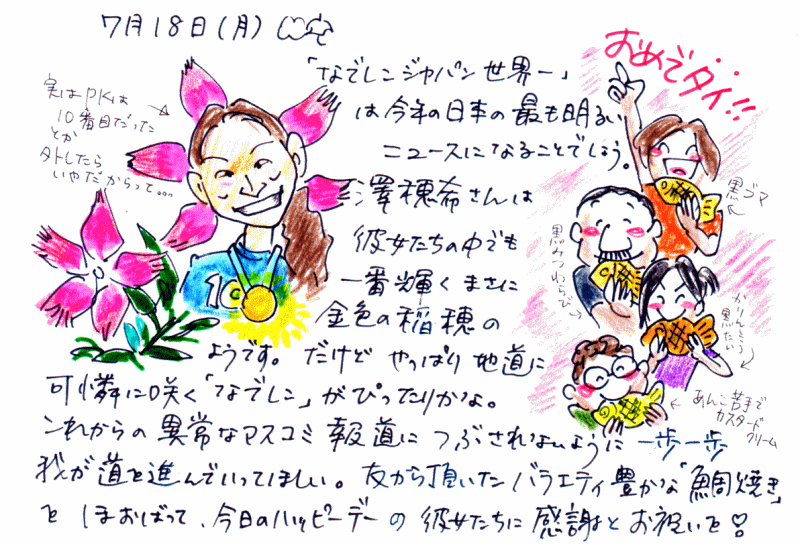 7月18日(月)
おめでタイ!!
「なでしこジャパン世界一」
は今年の日本の最も明るい
ニュースになることでしょう。
澤穂希さんは
彼女たちの中でも
一番輝くまさに
金色の稲穂の
ようです。だけど やっぱり 地道に
可憐に咲く「なでしこ」がぴったりかな。
これからの異常なマスコミ報道に つぶされないように 一歩一歩
我が道を進んでいってほしい。友から頂いたバラエティ豊かな「鯛焼き」
を ほおばって、今日のハッピーデーの彼女たちに感謝とお祝いを!
実はPKは
10番目だった
とか
外したら
いやだからって…
10
黒ゴマ
黒みつわらび
かりんとう
黒たい
あんこ苦手で
カスタード
クリーム